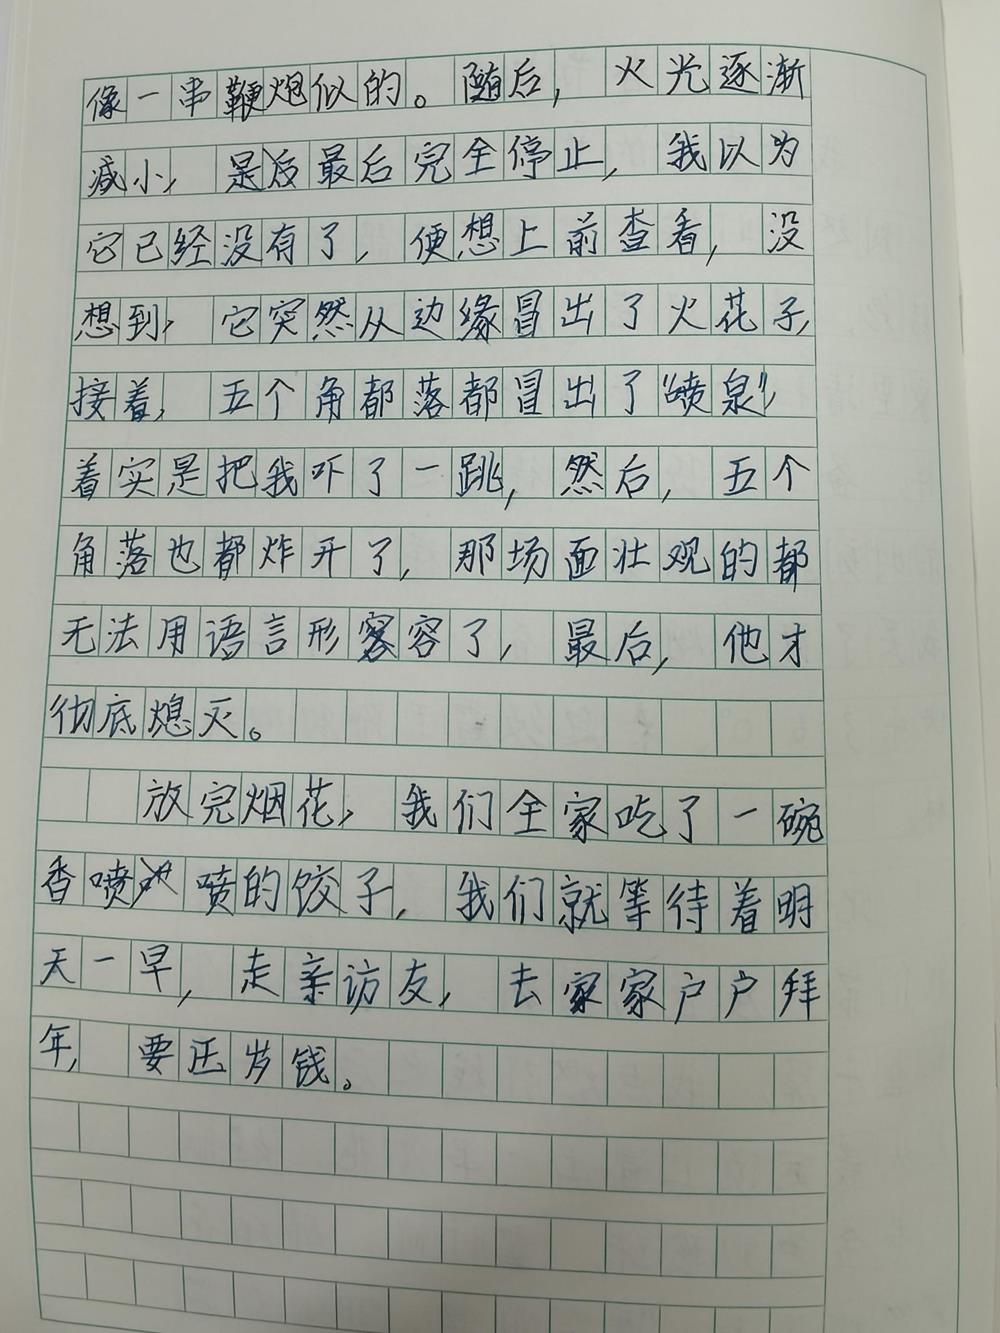 像一串鞭炮似的。随后，火光逐渐
减小，是后最后完全停止，我以为
它已经没有了，便想上前查看，没
想到，它突然从边缘冒出了火花子，
接着，五个角都落都冒出了“喷泉”，
着实是把我吓了一跳，然后，五个
角落也都炸开了，那场面壮观的都
无法用语言形容了，最后，他才
彻底熄灭。
放完烟花，我们全家吃了一碗
香喷喷的饺子，我们就等待着明
天一早，走亲访友，去家家户户拜
年，要压岁钱。